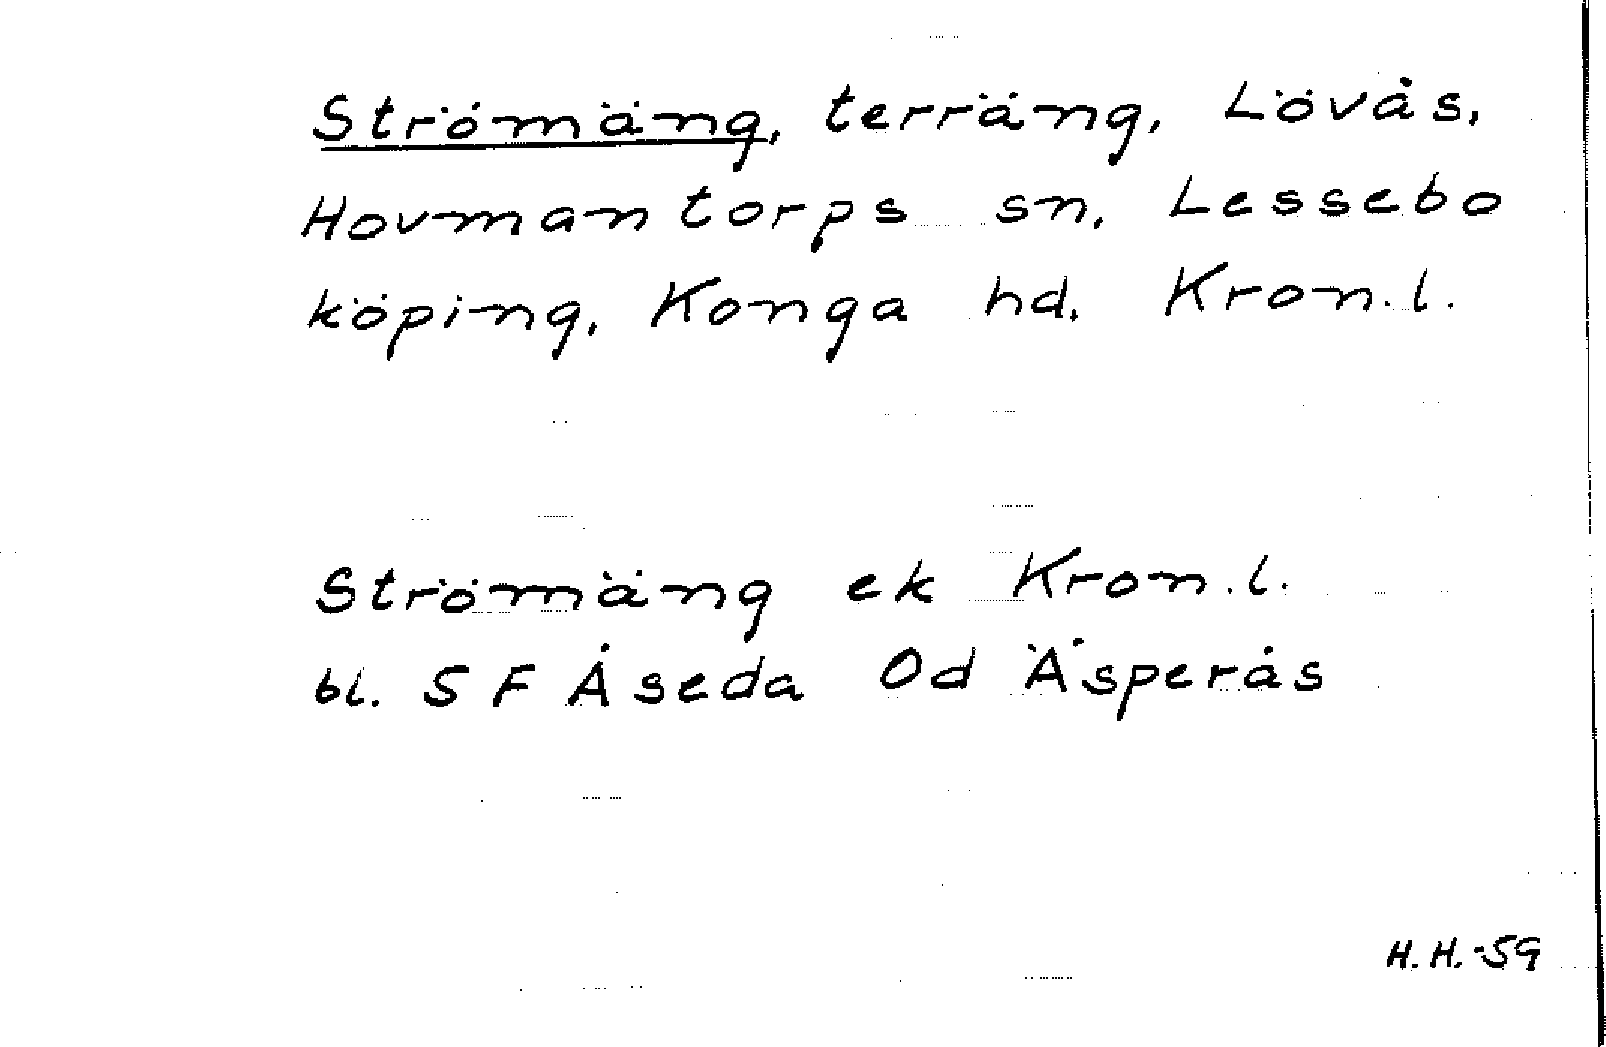 Strömäng, terräng, Lövås,
Hovmantorps sn, Lessebo
köping, Konga hd, Kron.l.
Strömäng ek Kron.l.
bl. 5 F Åseda Od Äsperås
H.H.-59